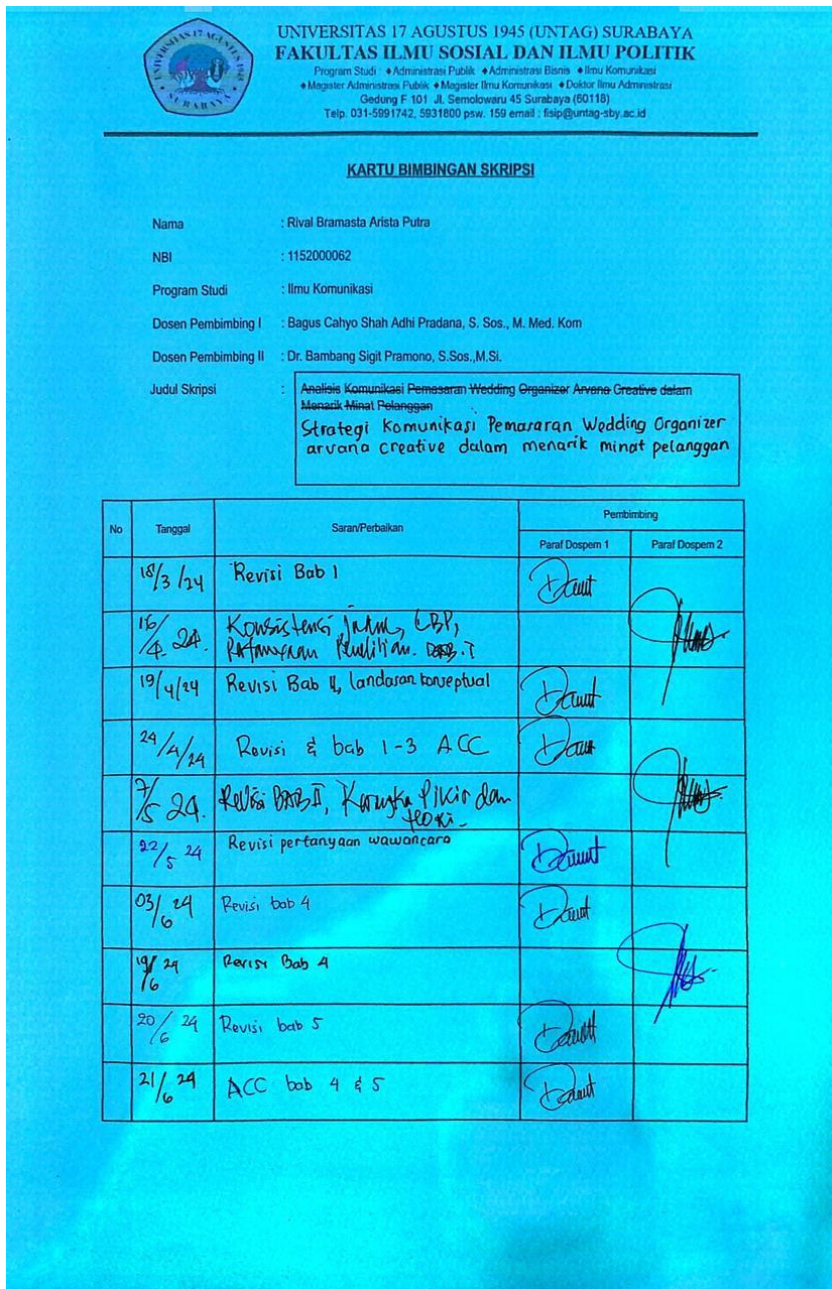 UNIVERSITAS 17 AGUSTUS 1945
SURABAYA
UNIVERSITAS 17 AGUSTUS 1945 (UNTAG) SURABAYA
FAKULTAS ILMU SOSIAL DAN ILMU POLITIK
Program Studi : ♦Administrasi Publik ♦Administrasi Bisnis ♦Ilmu Komunikasi
♦Magister Administrasi Publik ♦Magister Ilmu Komunikasi ♦Doktor Ilmu Administrasi
Gedung F 101 Jl. Semolowaru 45 Surabaya (60118)
Telp. 031-5991742, 5931800 psw. 159 email : fisip@untag-sby.ac.id
KARTU BIMBINGAN SKRIPSI
Nama : Rival Bramasta Arista Putra
NBI : 1152000062
Program Studi : Ilmu Komunikasi
Dosen Pembimbing I : Bagus Cahyo Shah Adhi Pradana, S. Sos., M. Med. Kom
Dosen Pembimbing II : Dr. Bambang Sigit Pramono, S.Sos.,M.Si.
Judul Skripsi : Analisis Komunikasi Pemasaran Wedding Organizer Arvana Creative dalam
Menarik Minat Pelanggan
Strategi Komunikasi Pemasaran Wedding Organizer
arvana creative dalam menarik minat pelanggan
No Tanggal Saran/Perbaikan Pembimbing
Paraf Dospem 1 Paraf Dospem 2
18/3/24 Revisi Bab 1
16/4 24. Konsistensi LBP,
Penelitian.
19/4/24 Revisi Bab landasan konseptual
24/4/24 Revisi & bab 1-3 ACC
7/5 24. Revisi BAB II, Kerangka Pikir dan
teori.
22/5 24 Revisi pertanyaan wawancara
03/6 24 Revisi bab 4
19/6 24 Revisi Bab 4
20/6 24 Revisi bab 5
21/6 24 ACC bab 4 & 5